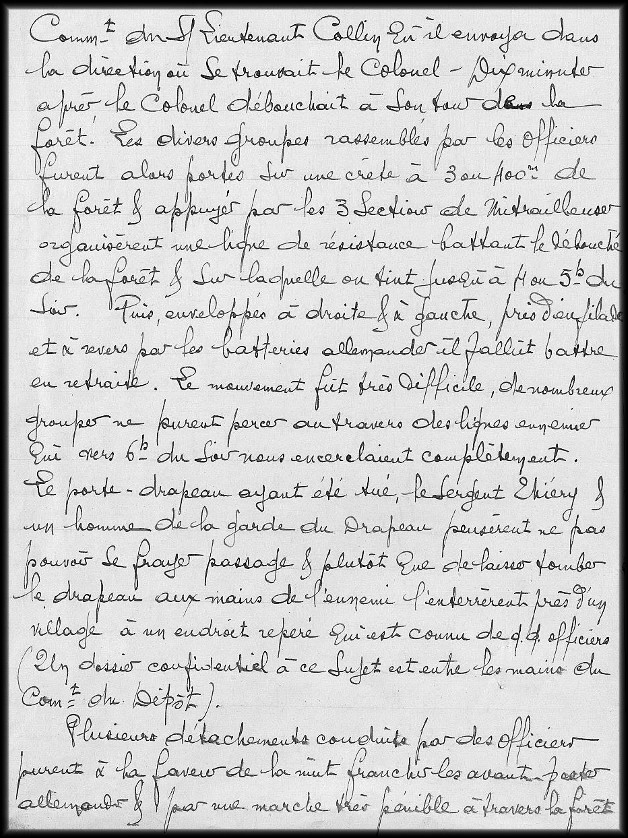 Commt du S/ Lieutenant Collin qu'il envoya dans
la direction où se trouvait le Colonel - Dix minutes
après le Colonel débouchait à son tour dans la
forêt. Les divers groupes rassemblés par les officiers
furent alors portés sur une crête à 3 ou 400m de
la forêt & appuyés par les 3 Sections de Mitrailleuses
organisèrent une ligne de résistance battant le débouché
de la forêt & sur laquelle on tint jusqu'à 4 ou 5h du
soir. Puis, enveloppés à droite & à gauche, pris d'enfilade
et à revers par les batteries allemandes il fallût battre
en retraite. Le mouvement fût très difficile, de nombreux
groupes ne purent percer au travers des lignes ennemies
qui vers 6h du soir nous encerclaient complètement.
Le porte-drapeau ayant été tué, le Sergent Thiéry &
un homme de la garde du Drapeau pensèrent ne pas
pouvoir se frayer passage & plutôt que de laisser tomber
le drapeau aux mains de l'ennemi l'enterrèrent près d'un
village à un endroit repéré qui est connu de q.q. officiers
(Un dossier confidentiel à ce sujet est entre les mains du
Comt du Dépôt).
Plusieurs détachements conduits par des officiers
purent à la faveur de la nuit franchir les avant-postes
allemands & par une marche très pénible à travers la forêt